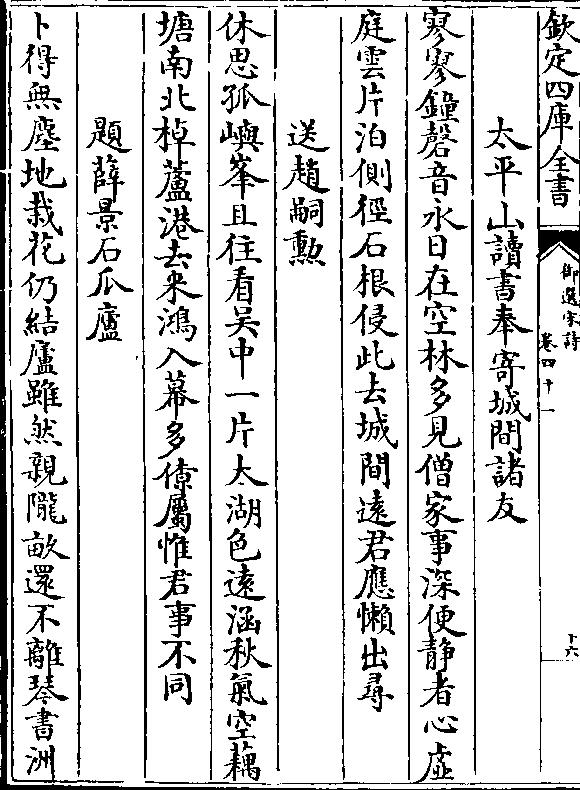 欽定四庫全書
御選宋詩
卷四十一
十六
太平山讀書奉寄城間諸友
寥寥鐘磬音永日在空林多見僧家事深便靜者心虛
庭雲片泊側徑石根侵此去城間遠君應懶出尋
送趙嗣勲
休思孤嶼峯且往看吴中一片太湖色遠涵秋氣空藕
塘南北棹蘆港去來鴻入幕多僚屬惟君事不同
題薛景石瓜廬
卜得無塵地栽花仍結廬雖然親隴畝還不離琴書洲